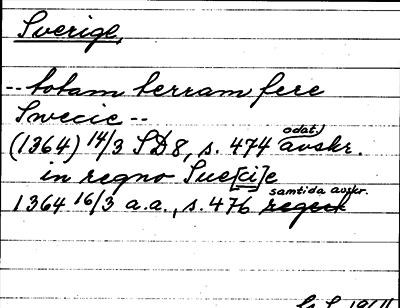 Sverige,
-- totam terram fere
Swecie --
(1364) 14/3 SD8, s. 474 odat. avskr.
in regno Sue[ci]e
1364 16/3 a.a., s. 476 samtida avskr.